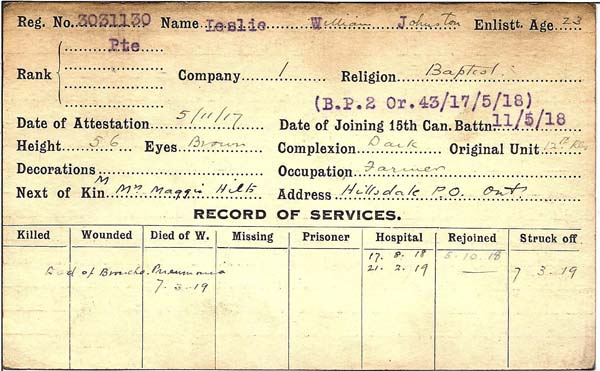 Reg. No. 3031130 Name Leslie William Johnston Enlistt. Age 23
Pte
Rank Company 1 Religion Baptist
(B.P.2 Or.43/17/5/18)
Date of Attestation 5/11/17 Date of Joining 15th Can. Battn. 11/5/18
Height 5 6 Eyes Brown Complexion Dark Original Unit
Decorations Occupation Farmer
Next of Kin Mrs Maggie Address Hillsdale P.O. Ont
RECORD OF SERVICES.
Killed Wounded Died of W. Missing Prisoner Hospital Rejoined Struck off
17. 8. 18 5.10.18
Died of Broncho. Pneumonia 21. 2. 19 7 3.19
7.3.19